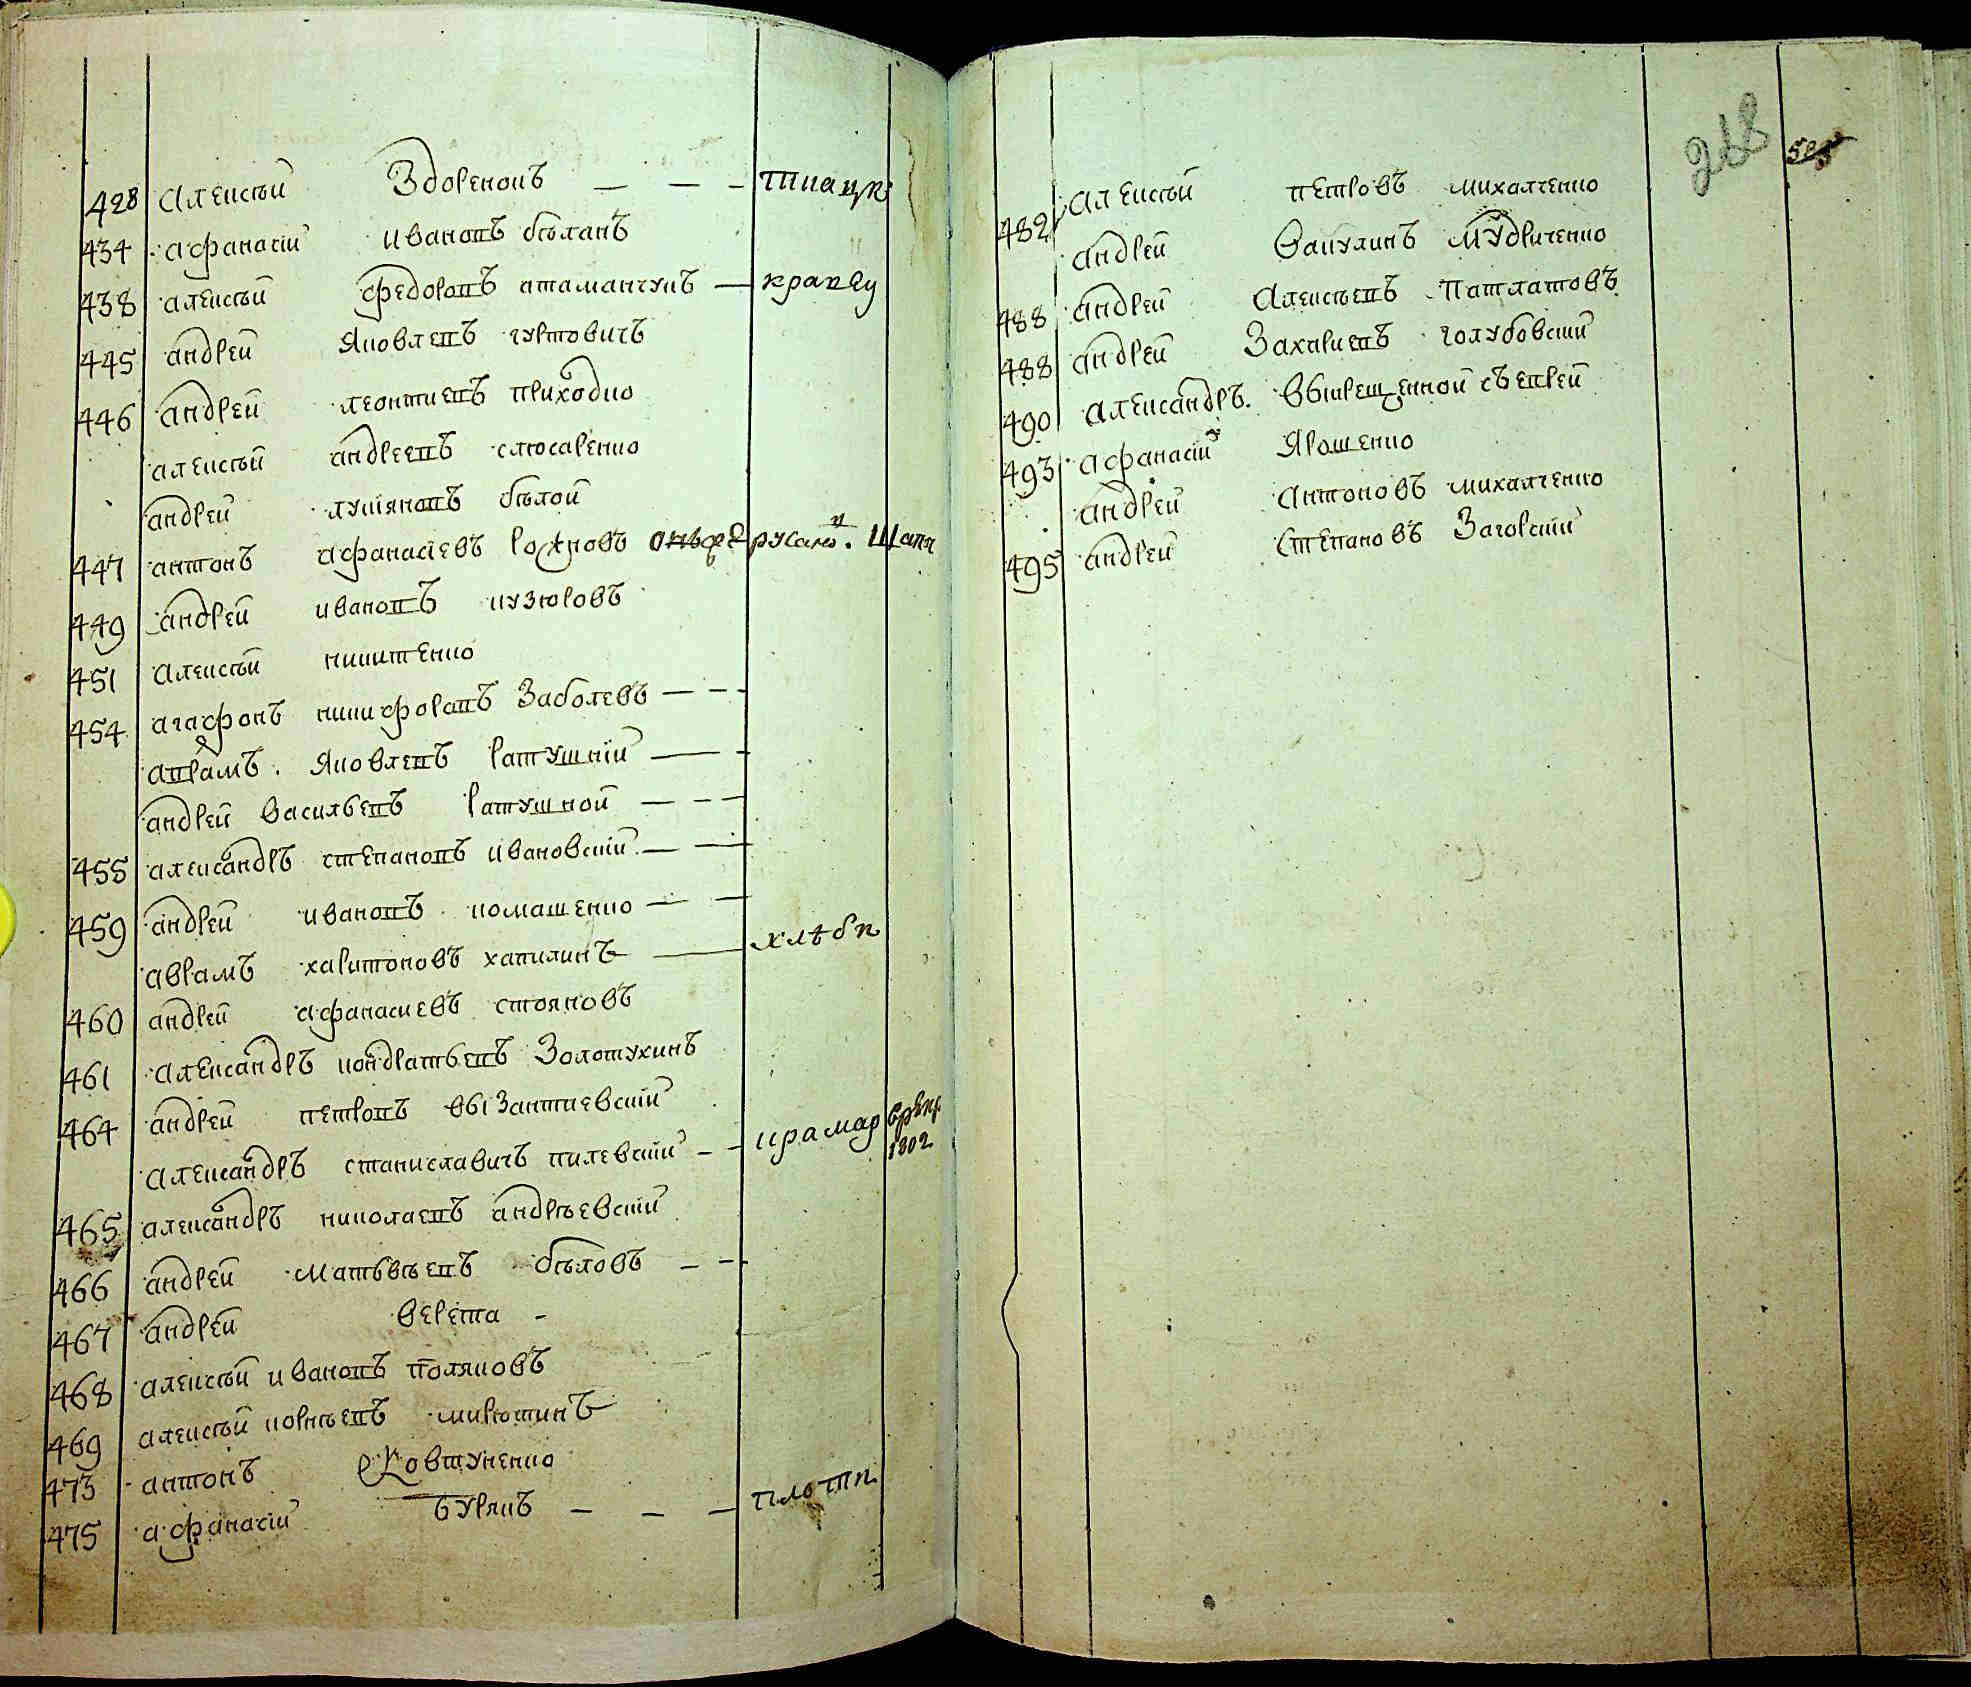 428 Алексѣй Здоренокъ — — — ткацк
434 афанасій Ивановъ бѣланъ
438 алексѣй федоровъ атаманчукъ — кравец
445 андрей Яковлевъ гуртовичъ
446 андрей леонтиевъ приходко
алексѣй андреевъ слюсаренко
андрей лукіяновъ бѣлой
447 антонъ афанасіевъ рохновъ
449 андрей ивановъ кузюровъ
451 Алексѣй никитенко
454 агафонъ никифоровъ Заболевъ — — —
аврамъ. Яковлевъ ратушній — —
андрей васильевъ ратушной — — —
455 александръ степановъ ивановскій — —
459 андрей ивановъ комашенко — —
аврамъ харитоновъ хапилинъ — хлѣбп
460 андрей афанасиевъ стояновъ
461 Александръ кондратьевъ Золотухинъ
464 андрей петровъ византиевскій
Александръ станиславичъ пилевскій — — крамар
1802
465 александръ николаевъ андрѣевскій
466 андрей матьвѣевъ бѣловъ — —
467 андрей верета -
468 алексѣй ивановъ поляковъ
469 алексѣй корнѣевъ микютинъ
473 антонъ Ковтуненко
475 афанасій бурякъ — — — плотн
482 Алексѣй петровъ михалченко
андрей вакулинъ мудриченко
488 андрей Алексѣевъ Патлатовъ
488 андрей Захариевъ голубовскій
490 Александръ. выкрещенной съевреи
493 афанасій Ярошенко
андрей антоновъ михалченко
495 андрей Степановъ Загорскій